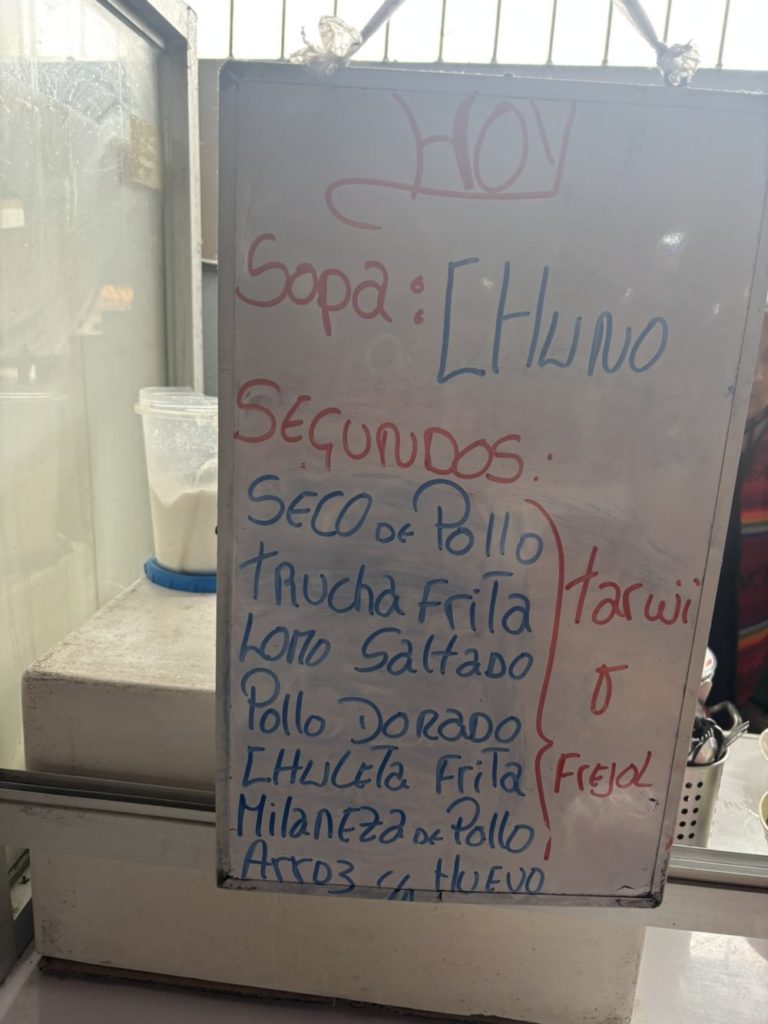 HOY
Sopa: CHUNO
SEGUNDOS:
SECO DE Pollo
TRUCHA FRITA
LOMO SALTADO
Pollo DORADO
CHULETA FRITA
MILANEZA DE Pollo
Arroz c/n HUEVO
tarwi
o
FREJOL